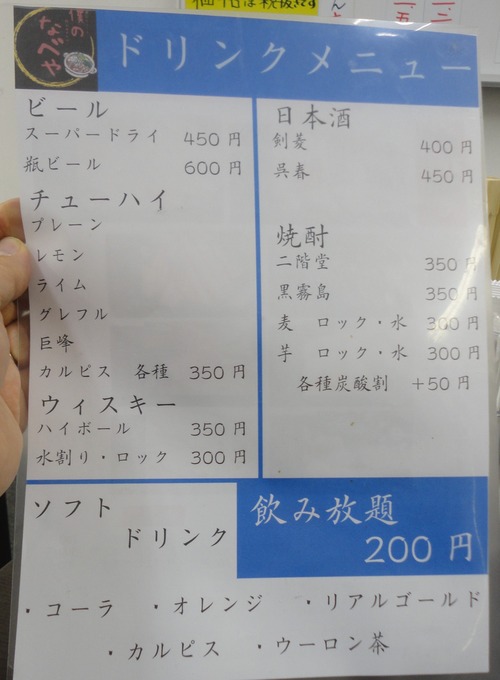 僕の
なべや
ドリンクメニュー
ビール
スーパードライ 450円
瓶ビール 600円
チューハイ
プレーン
レモン
ライム
グレフル
巨峰
カルピス 各種 350円
ウィスキー
ハイボール 350円
水割り・ロック 300円
日本酒
剣菱 400円
呉春 450円
焼酎
二階堂 350円
黒霧島 350円
麦 ロック・水 300円
芋 ロック・水 300円
各種炭酸割 +50円
ソフト
ドリンク
飲み放題
200円
・コーラ ・オレンジ ・リアルゴールド
・カルピス ・ウーロン茶